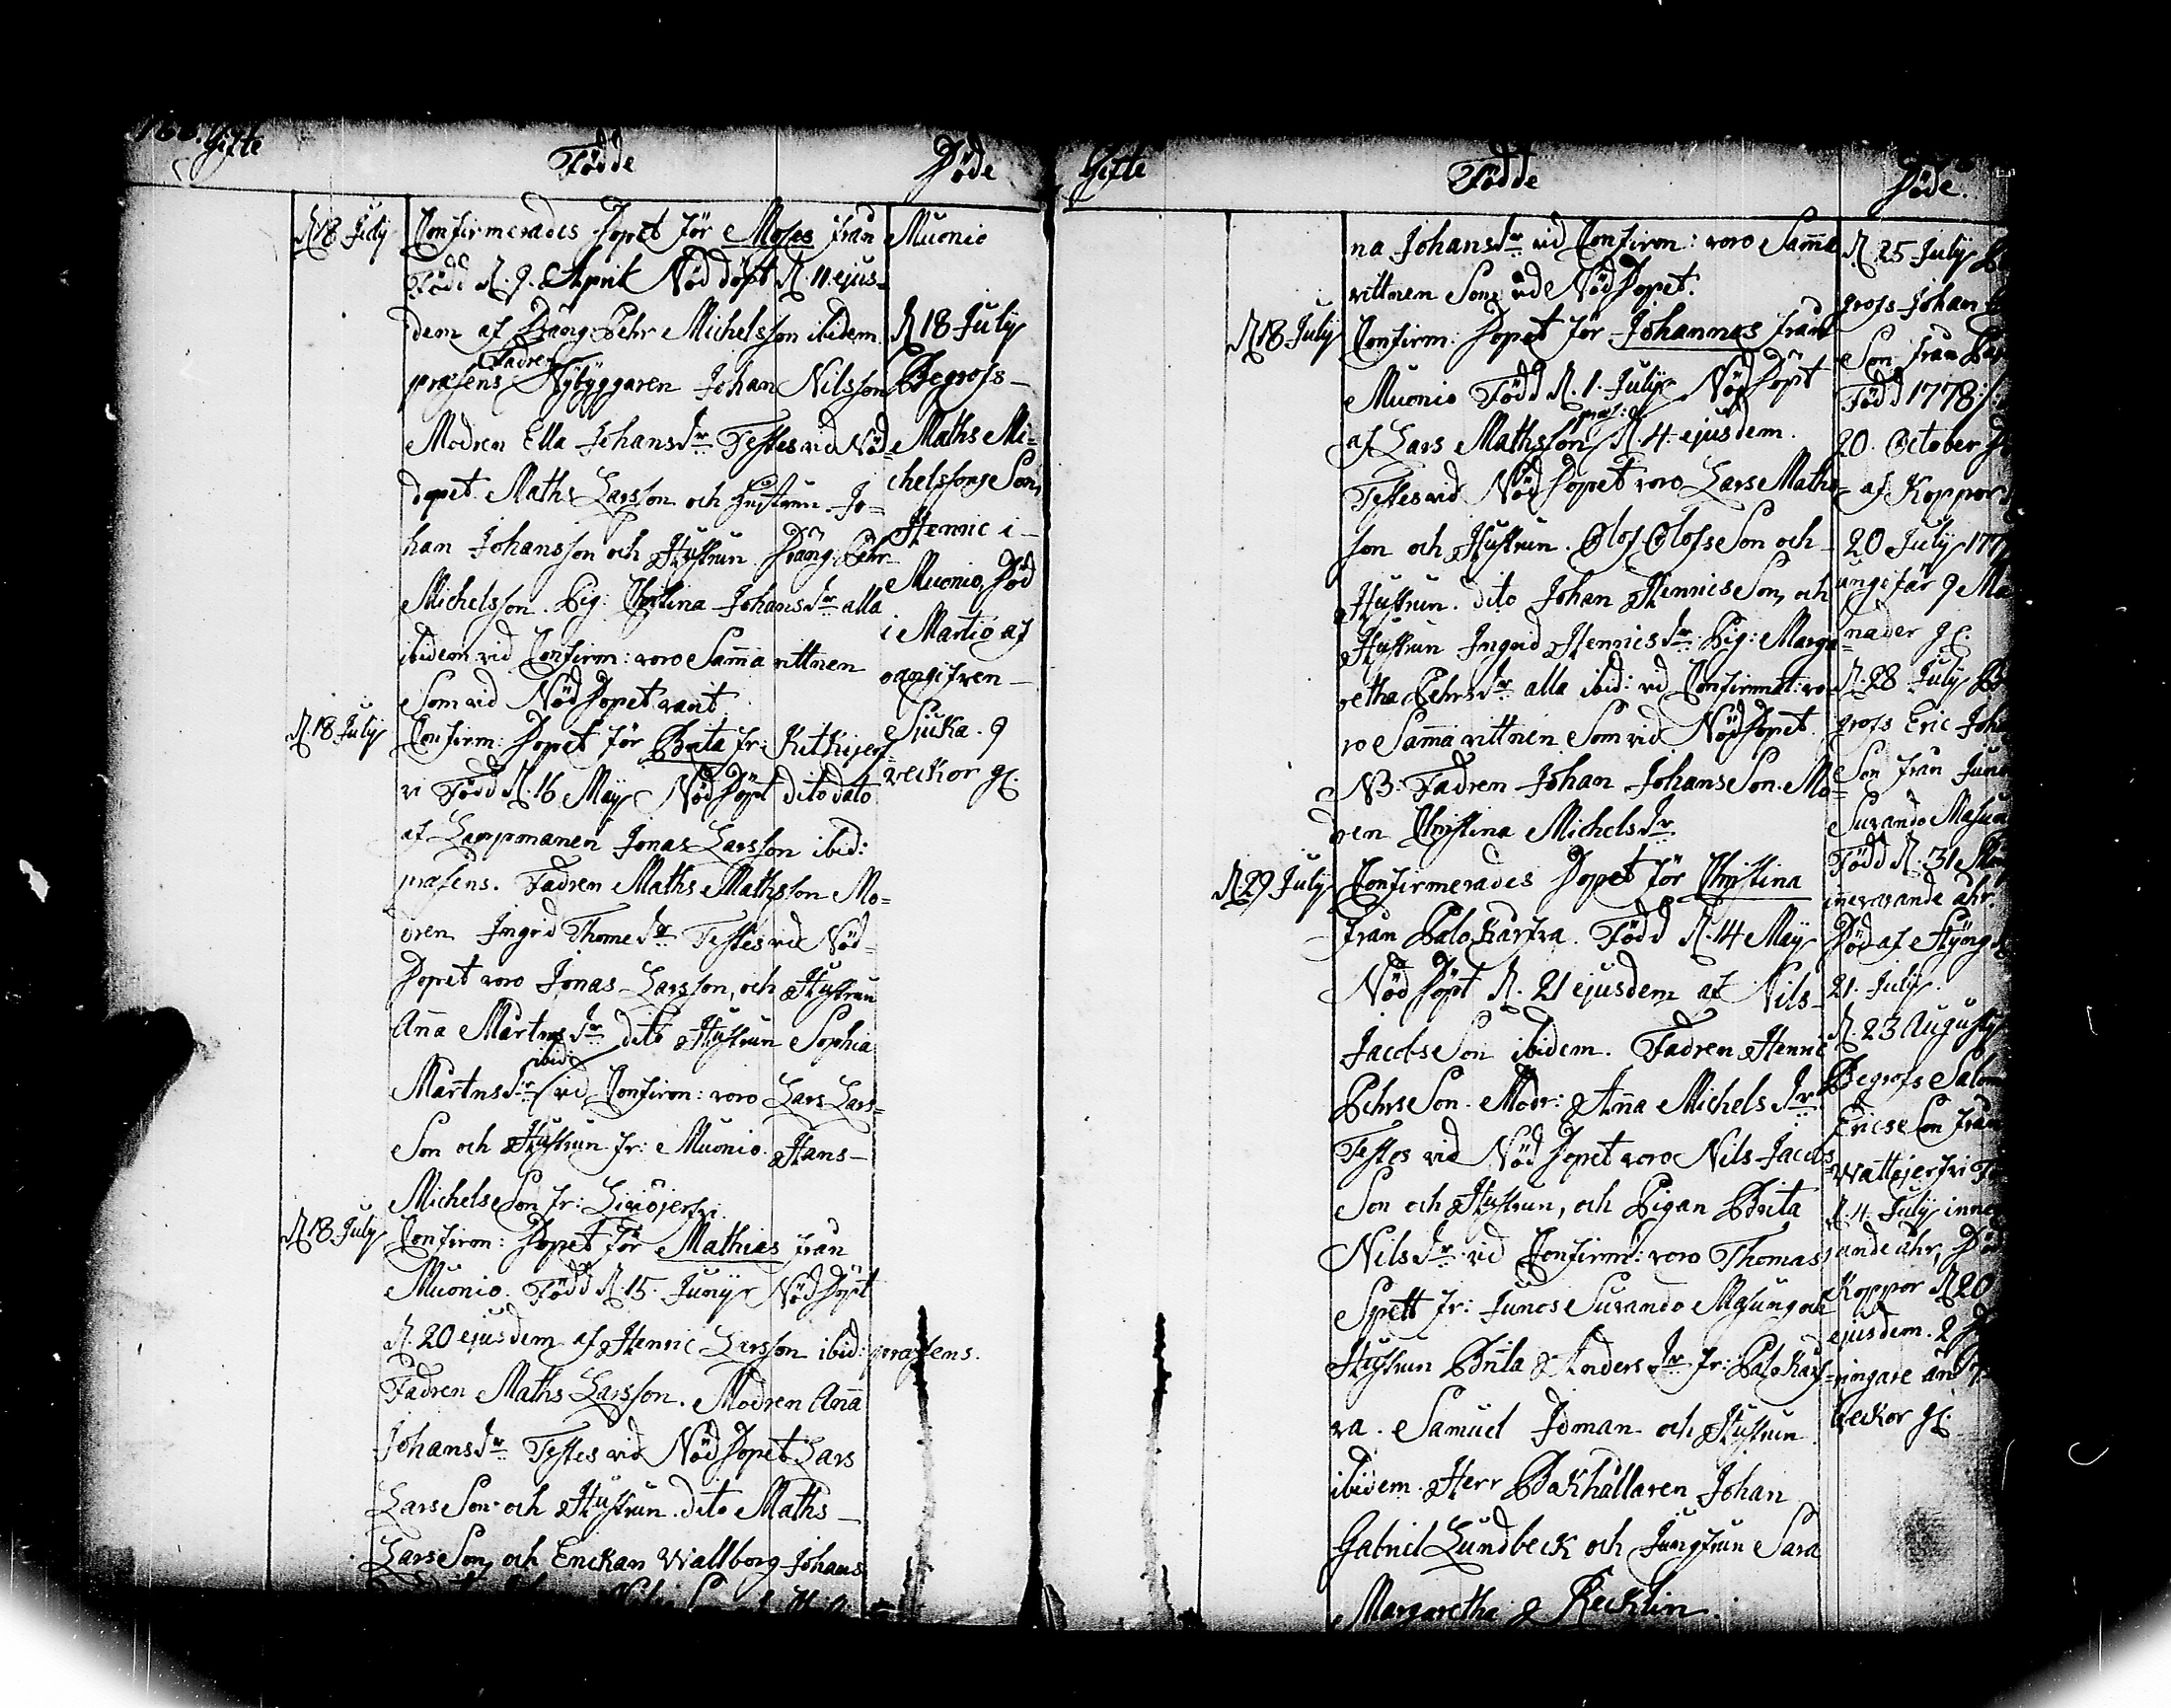 166. Gifte
Födde
Döde
D. 18 July
Confirmerades Dopet för Moses från
Född D. 9. April Nöddöpt D. 11. ejus-
dem af Dräng. Pehr Michelsson ibidem
Fadren
præsens Nybyggaren Johan Nilsson
Modren Ella Johans Dr. Testes vid Nöd-
dopet Maths Larsson och Hustrun. Jo-
han Johansson och Hustrun Dräng. Pehr
Michelsson. Pig: Christina Johans Dr. alla
ibidem vid Confirm: voro Samma vittnen
Som vid Nöd Dopet varit
D. 18 July
Confirm: Dopet för Brita fr: Kitkijerf-
vi Född D. 16 Maij Nöd Döpt dito dato
af Lappmanen Jonas Larsson ibid:
præsens. Fadren Maths Mathsson Mo-
dren Ingrid Thome Dr. Testes vid Nöd-
Dopet voro Jonas Larsson, och Hustrun
Anna Martins Dr. dito Hustrun Sophia
ibid:
Martns Dr. vid Confirm: voro Lars Lars-
Son och Hustrun fr: Muonio. Hans-
MichelsSon fr: Liviöjerfvi.
D. 18 July
Confirm: Dopet för Mathias från
Muonio. Född D. 15. Junij Nöd Döpt
D. 20 ejusdem af Henric Larsson ibid: præsens.
Fadren Maths Larsson. Modren Anna
Johans Dr. Testes vid Nöd Dopet Lars
LarsSon och Hustrun. dito Maths
LarsSon, och Enckan Wallborg Johans
Muonio
D. 18 July
Begrofs
Maths Mi-
chelssons Son,
Henric i
Muonio, Död
i Martio af
oangifven
Siuka. 9
veckor gl.
Gifte
Födde
Döde.
na Johans Dr. vid Confirm: voro Samma
vittnen Som vid Nöd Dopet.
D. 18 July
Confirm. Dopet för Johannas från
Muonio Född D. 1. July Nöd Döpt
præs:
af Lars Mathsson D. 4. ejusdem.
Testes vid Nöd Dopet voro Lars Maths-
son och Hustrun. Olof OlofsSon och
Hustrun. dito Johan HenricsSon, och
Hustrun Ingrid Henrics Dr. Pig: Marga-
retha Pehrs Dr. alla ibid: vid Confirmat: vo-
ro Samma vittnen Som vid Nöd Dopet.
NB. Fadren Johan JohansSon. Mo-
dren Christina Michels Dr.
D. 29. July
Confirmerades Dopet för Christina
från Palokarfva. Född D. 14 Maij
Nöd Döpt D. 21 ejusdem af Nils
JacobsSon ibidem. Fadren Henric
PehrsSon. Modr: Anna Michels Dr.
Testes vid Nöd Dopet voro Nils Jacobs
Son och Hustrun, och Pigan Brita
Nils Dr. vid Confirm: voro Thomas
Spett fr: Junos Suvando Masung och
Hustrun Brita Anders Dr. fr: Palokarf-
va. Samuel Idman och Hustrun
ibidem. Herr Bokhållaren Johan
Gabriel Lundbeck och Jungfrun Sara
Margaretha Recklin.
D. 25 July Be
grofs Johan
Son från
Född 1778
20. October
af Koppor
20 July 177
ungefär 9 Må-
nader gl.
D. 28 July Be
grofs Eric Joh
Son från Juno
Suvando Masu
Född D. 31
innevarande åhr.
Död af Styng
21. July.
D. 23 Augusti
Begrofs Salom
EricsSon från
Wattejerfvi
D. 4. July inne
rande åhr, Död
Koppor D. 20
ejusdem. 2
ringare än
veckor gl.